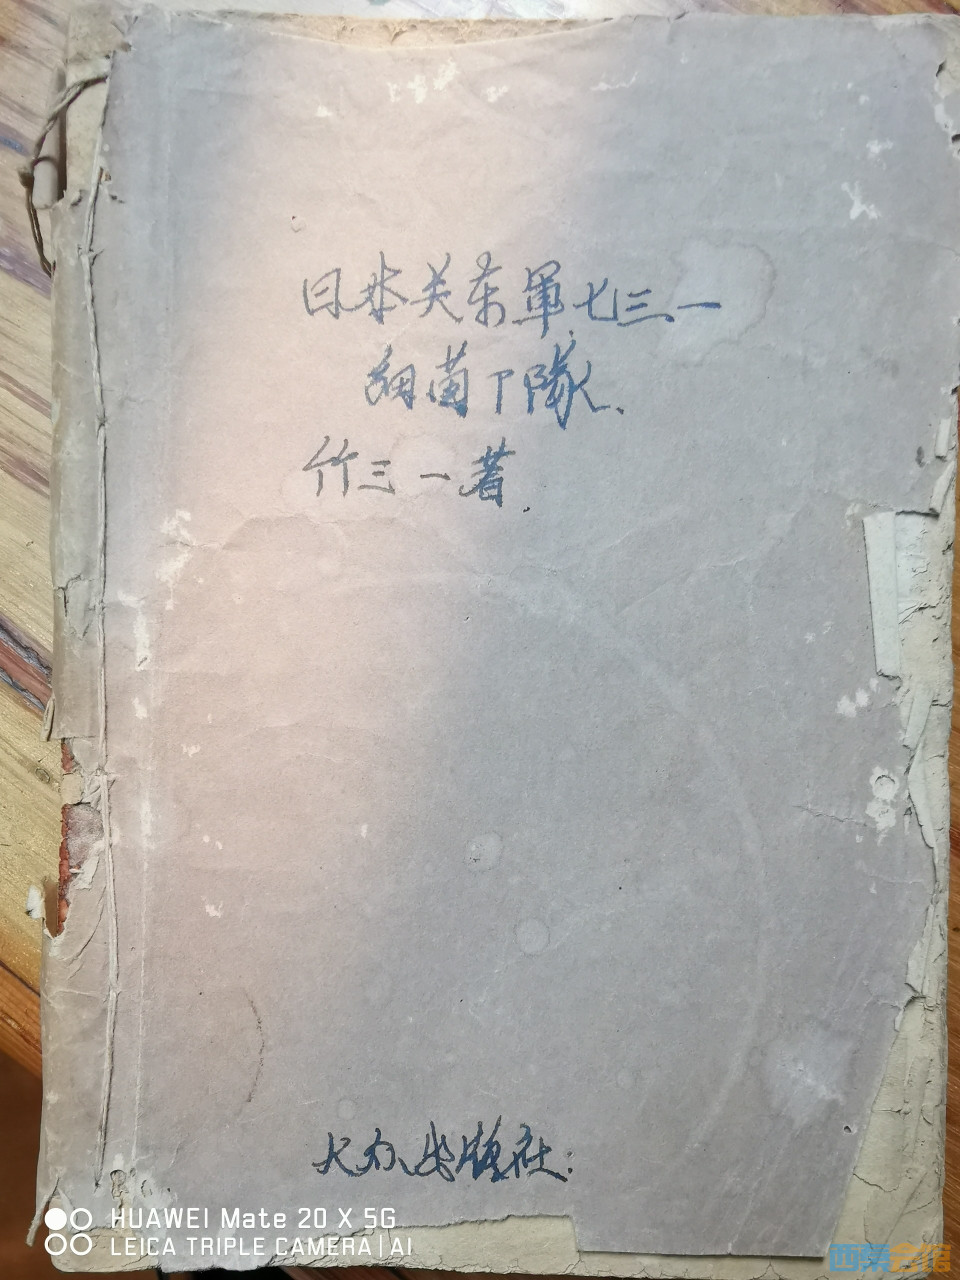 日本关东軍七三一
細菌卩隊、
竹三一著.
大众出版社.
HUAWEI Mate 20 X 5G
LEICA TRIPLE CAMERA | AI
西祠会馆